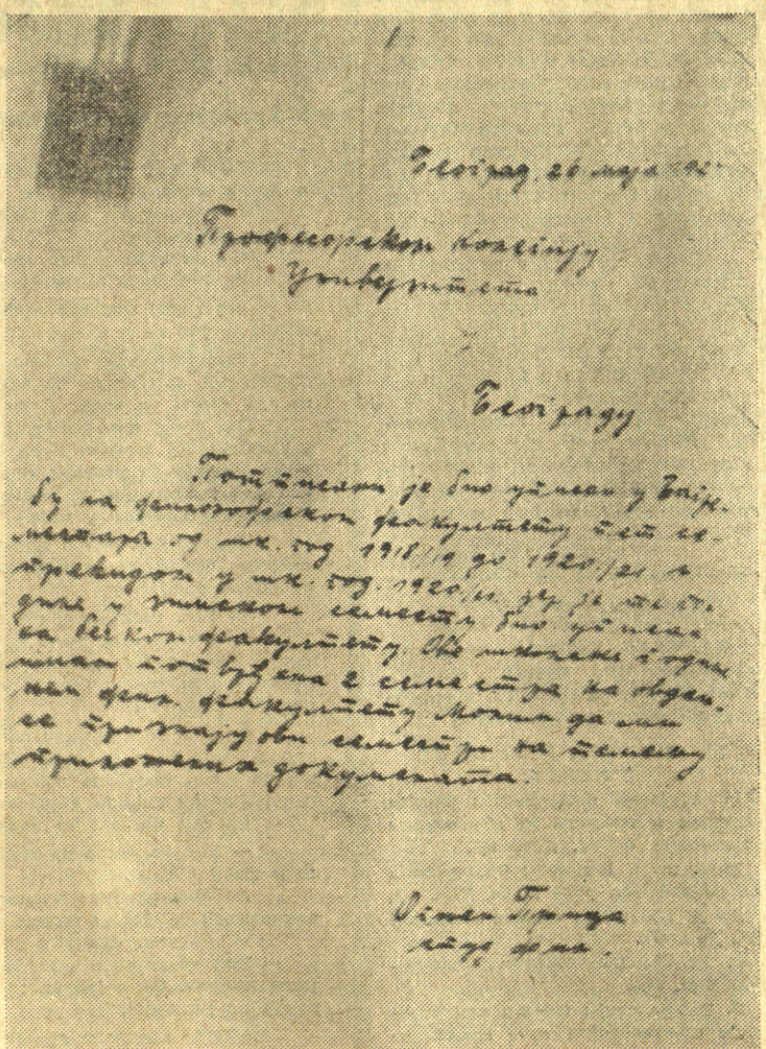 Београд, 26 маја 192
Професорском Колегију
Универзитета
Београду
Потписан је био уписан у Загре-
бу на филозофском факултету пет се-
местара од шк. год 1918/19 до 1920/21 с
прекидом у шк. год. 1920/21. јер је те го-
дине у зимском семестру био уписан
на бечком факултету. Ове школске године
имам потврђена 2 семестра на овдаш-
њем фил. факултету. Молим да ми
се признају ови семестри на темељу
приложених докумената.
Огњен Прица
студ фил.